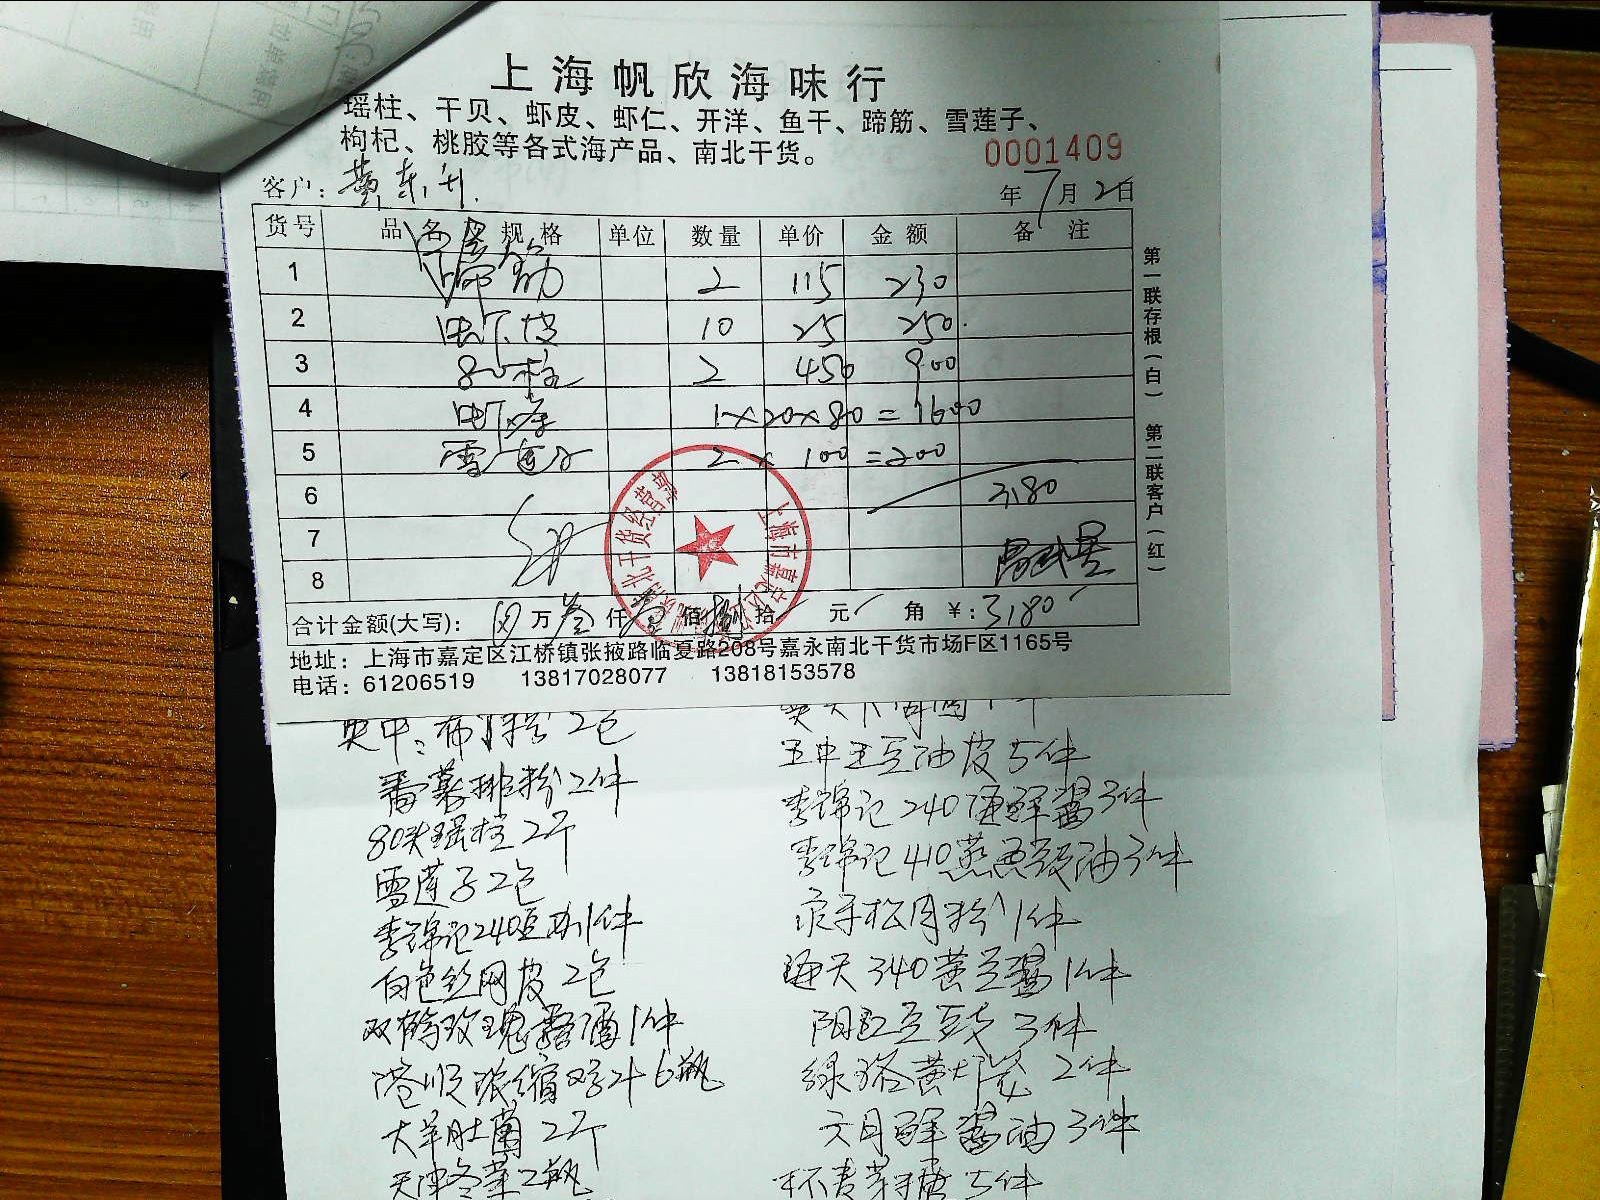 上海帆欣海味行
瑶柱、干贝、虾皮、虾仁、开洋、鱼干、蹄筋、雪莲子、
枸杞、桃胶等各式海产品、南北干货。
0001409
客户:黄东升
年7月2日
货号 品名及规格 单位 数量 单价 金额 备注
1 蹄筋 2 115 230
2 虾皮 10 25 250.
3 80柱 2 450 900
4 1×20×80=1600
5 雪莲子 2×100=200
6 3180
7
8
合计金额(大写): 万叁仟壹佰捌拾 元 角 ¥:3180
地址:上海市嘉定区江桥镇张掖路临夏路208号嘉永南北干货市场F区1165号
电话:61206519 13817028077 13818153578
第一联存根(白) 第二联客户(红)
2包
番薯排粉2件
80头瑶柱2斤
雪莲子2包
李锦记240 1件
白色丝网皮2包
双鹤玫瑰露酒1件
浓缩 汁6瓶
大羊肚菌2斤
天津冬菜2瓶
王中王豆油皮5件
李锦记240 海鲜酱3件
李锦记410蒸鱼豉油3件
松肉粉1件
海天340黄豆酱1件
阳江豆豉3件
2件
六月鲜酱油3件
麦芽糖5件